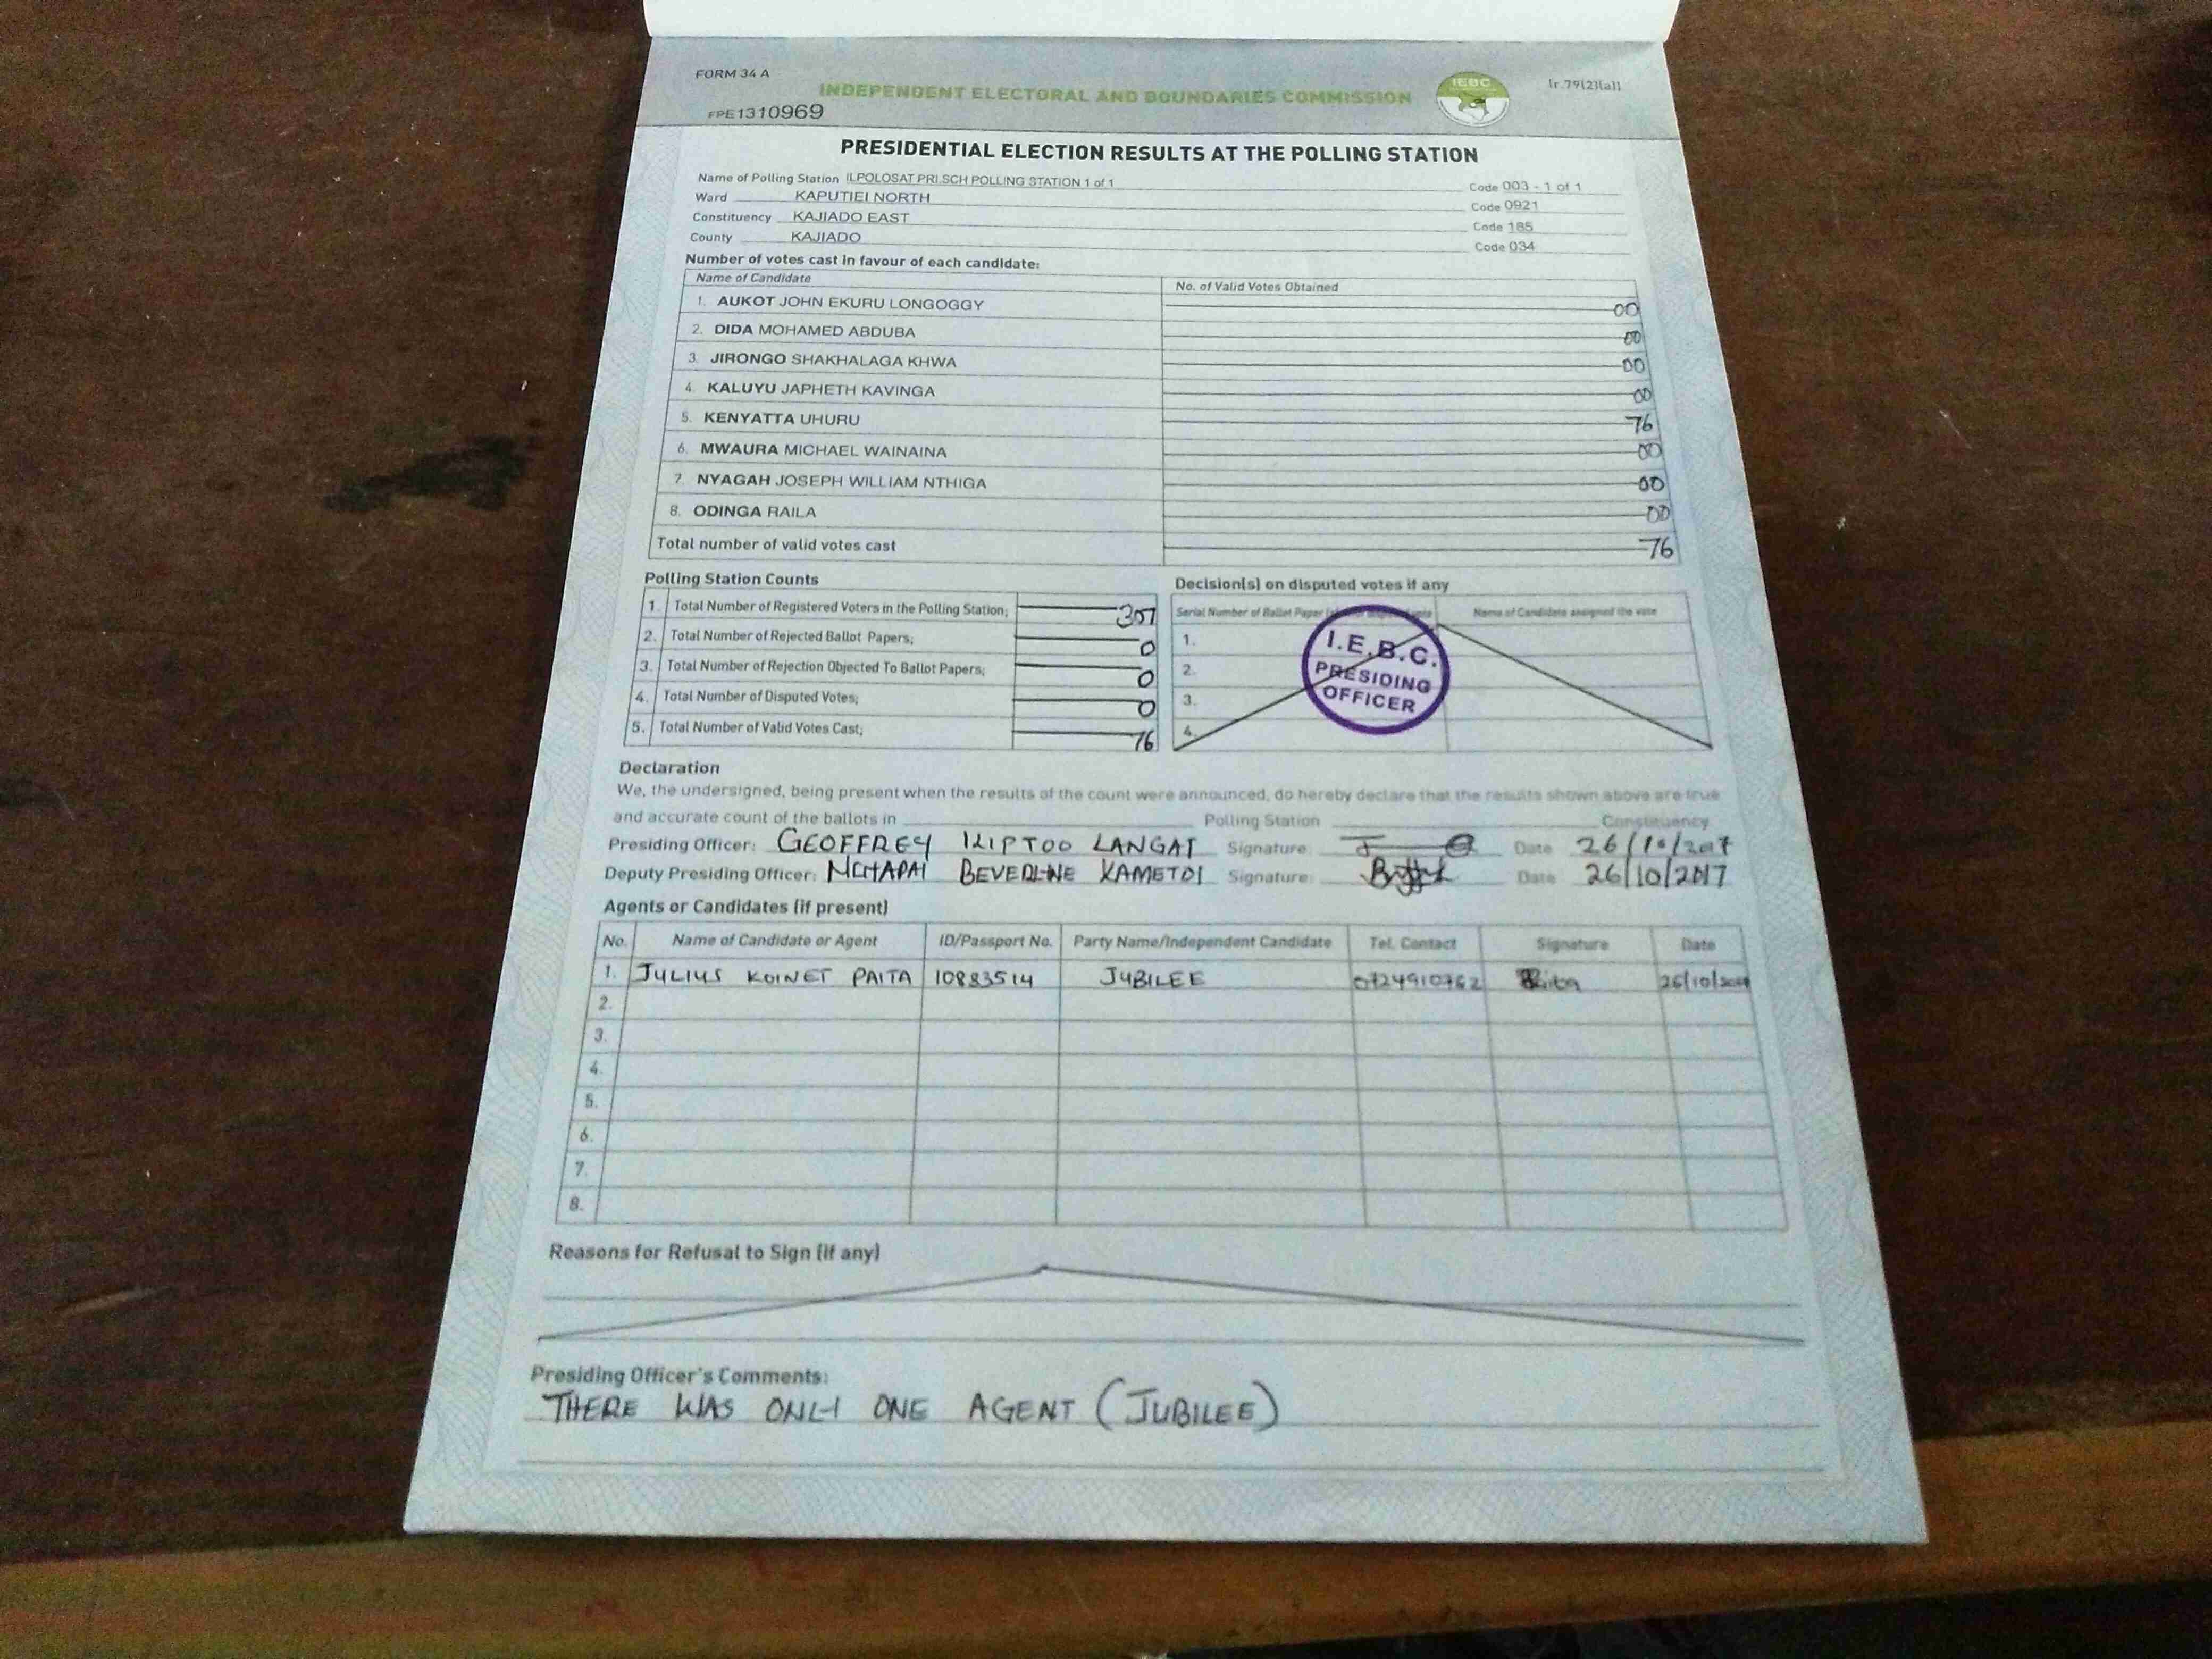 FORM 34 A
INDEPENDENT ELECTORAL AND BOUNDARIES COMMISSION
IEBC
[r.79(2)(a)]
FPE1310969
PRESIDENTIAL ELECTION RESULTS AT THE POLLING STATION
Name of Polling Station ILPOLOSAT PRI SCH POLLING STATION 1 of 1 Code 003 - 1 of 1
Ward KAPUTIEI NORTH Code 0921
Constituency KAJIADO EAST Code 185
County KAJIADO Code 034
Number of votes cast in favour of each candidate:
Name of Candidate No. of Valid Votes Obtained
1. AUKOT JOHN EKURU LONGOGGY 00
2. DIDA MOHAMED ABDUBA 00
3. JIRONGO SHAKHALAGA KHWA 00
4. KALUYU JAPHETH KAVINGA 00
5. KENYATTA UHURU 76
6. MWAURA MICHAEL WAINAINA 00
7. NYAGAH JOSEPH WILLIAM NTHIGA 00
8. ODINGA RAILA 00
Total number of valid votes cast 76
Polling Station Counts
1. Total Number of Registered Voters in the Polling Station; 307
2. Total Number of Rejected Ballot Papers; 0
3. Total Number of Rejection Objected To Ballot Papers; 0
4. Total Number of Disputed Votes; 0
5. Total Number of Valid Votes Cast; 76
Decision(s) on disputed votes if any
Serial Number of Ballot Paper Name of Candidate assigned the vote
1.
2.
3.
4.
I.E.B.C.
PRESIDING
OFFICER
Declaration
We, the undersigned, being present when the results of the count were announced, do hereby declare that the results shown above are true
and accurate count of the ballots in Polling Station Constituency
Presiding Officer: GEOFFREY KIPTOO LANGAT Signature: Date 26/10/2017
Deputy Presiding Officer: KAMETOI Signature: Date 26/10/2017
Agents or Candidates (if present)
No. Name of Candidate or Agent ID/Passport No. Party Name/Independent Candidate Tel. Contact Signature Date
1. JULIUS KOINET PAITA 10883514 JUBILEE 0724910762 26/10/2017
2.
3.
4.
5.
6.
7.
8.
Reasons for Refusal to Sign (if any)
Presiding Officer's Comments:
THERE WAS ONLY ONE AGENT (JUBILEE)